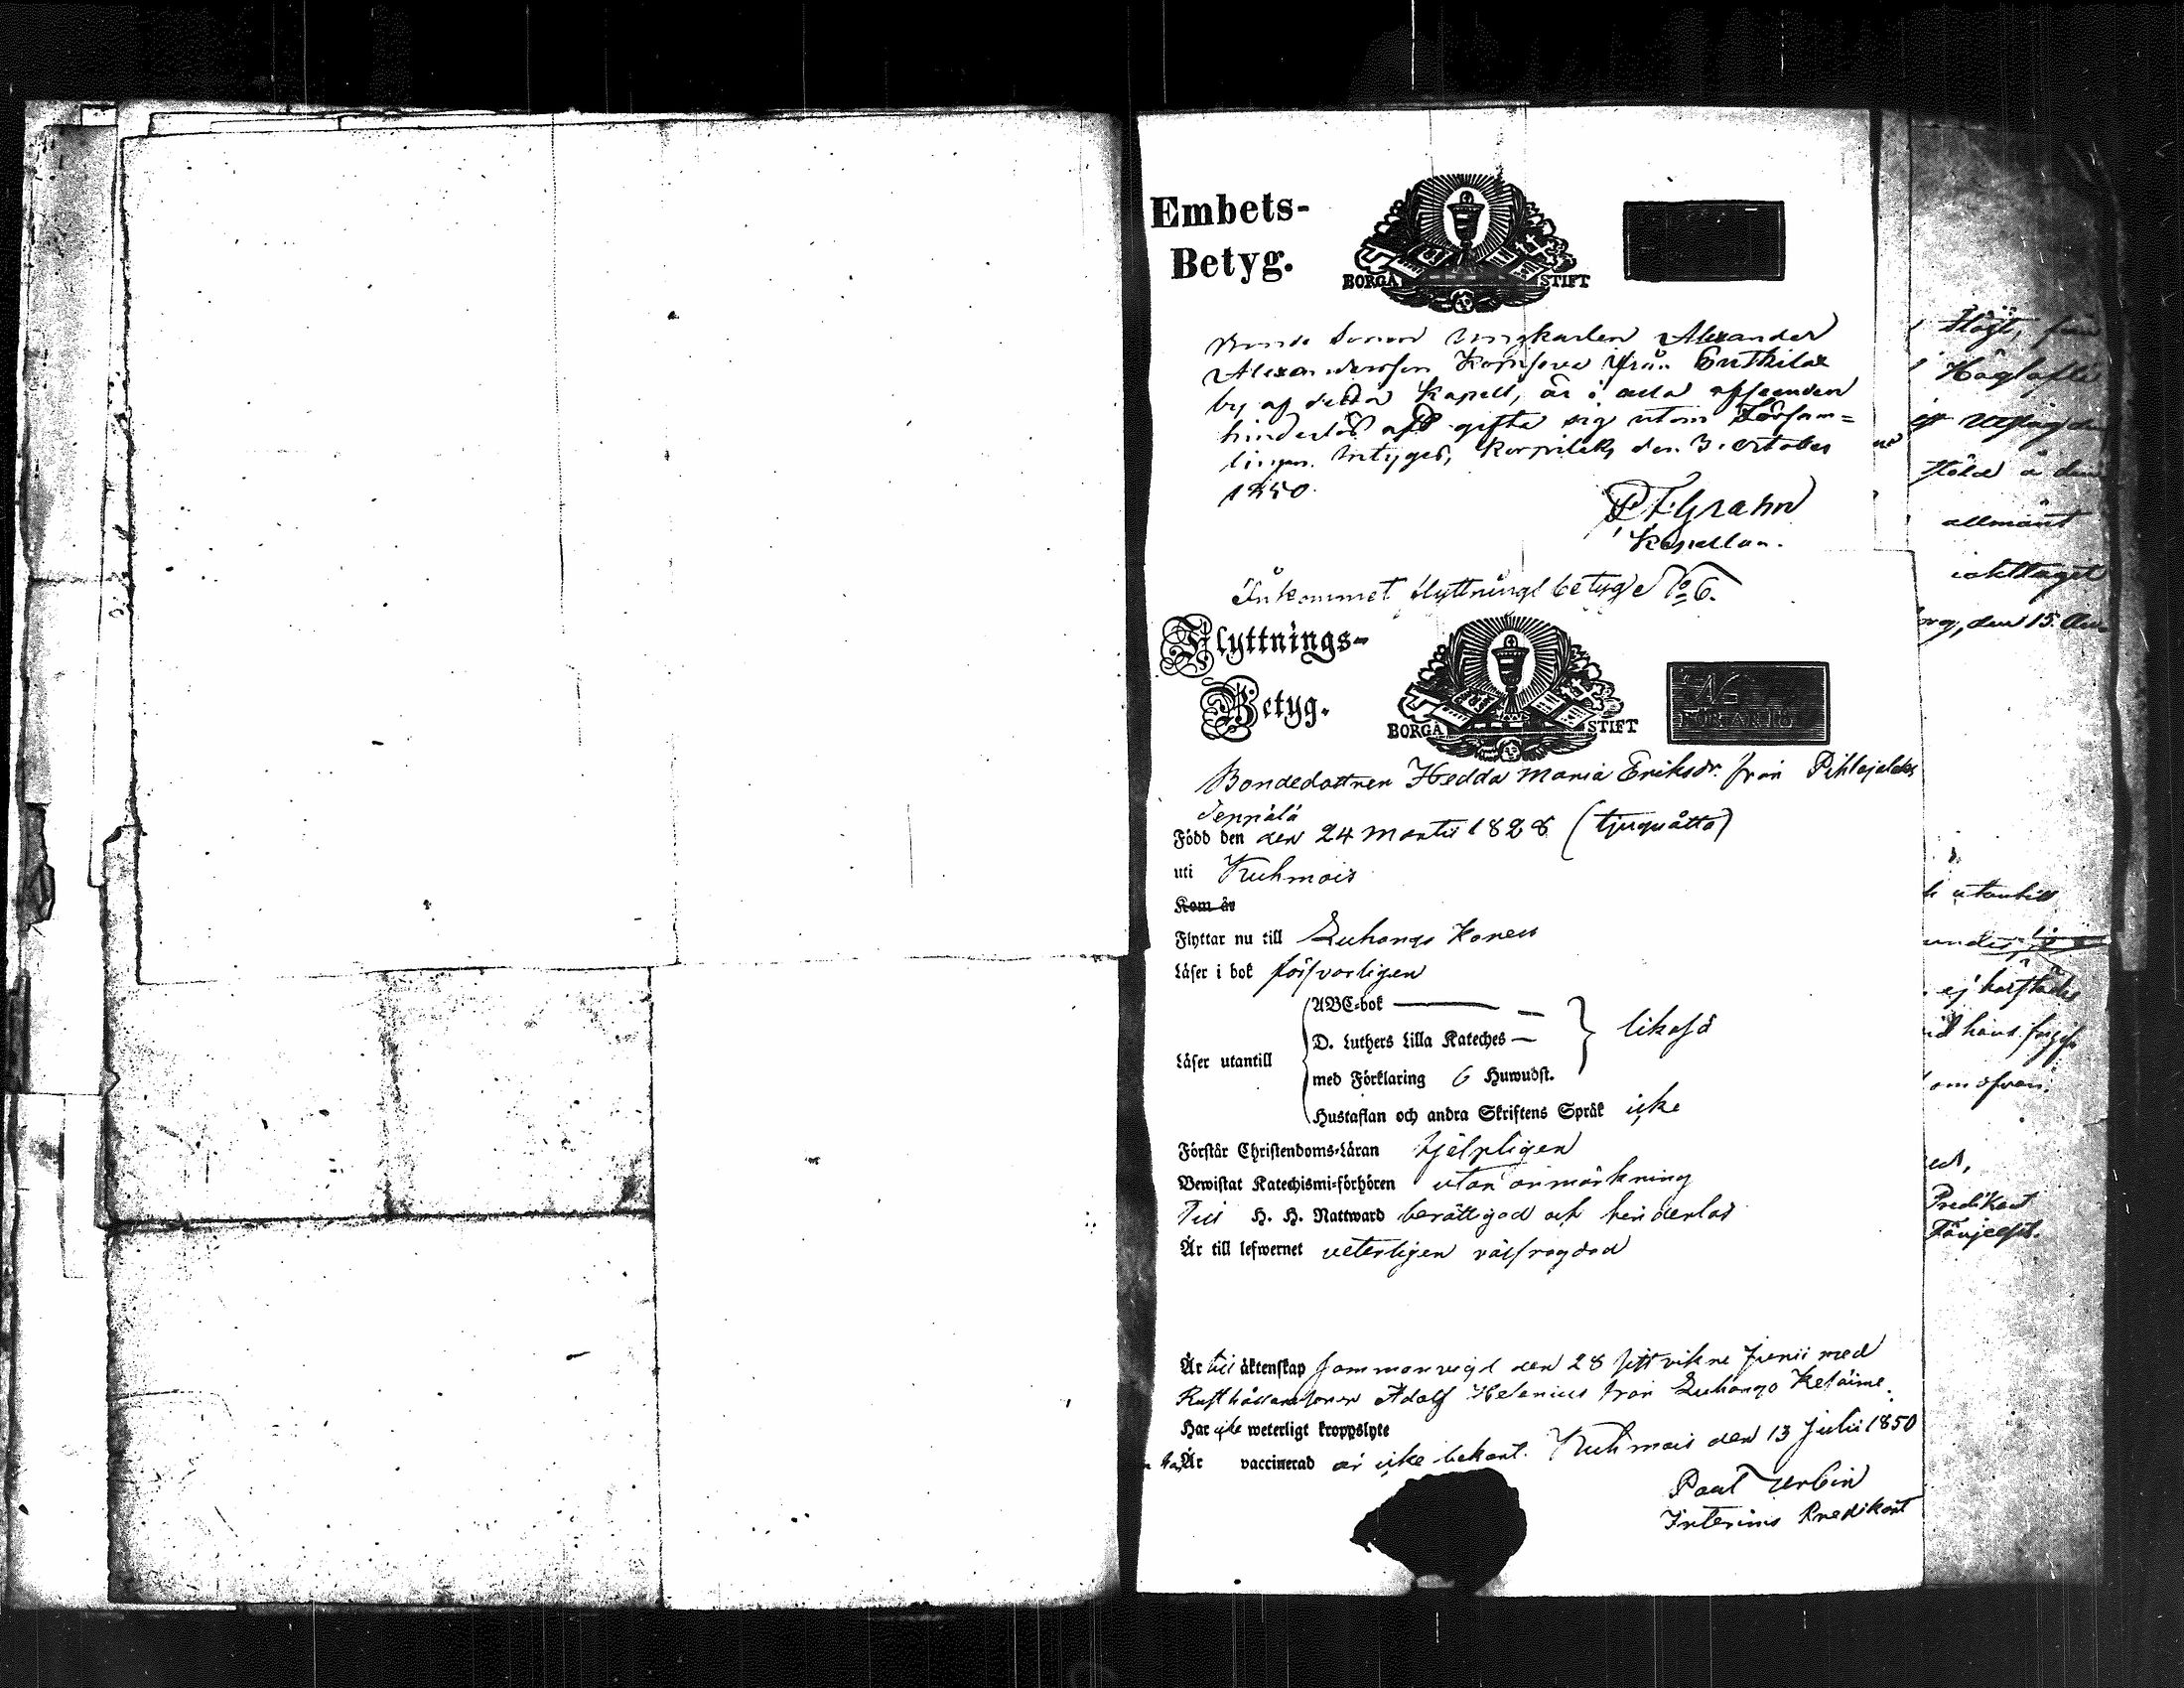 Embets-
Betyg.
BORGÅ STIFT
Bonde Sonen Ungkarlen Alexander
Alexandersson från
by af detta Kapell, är i alla afseenden
hinderlös att gifta sig utom Försam=
lingen. Intygas, Korpilaks den 3. October
1850.
Grahn
Kapellan.
Inkommet flyttnings betyg No 6.
Flyttnings-
Betyg.
BORGÅ STIFT
Bondedottren Hedda Maria Eriksdr. från Pihlajalaks
Seppälä
Född den den 24 Martii 1828 (tjuguåtta)
uti Kuhmois
Kom år
Flyttar nu till Luhango
Läser i bok försvarligen
ABC-bok
D. Luthers Lilla Kateches
likaså
Läser utantill
med Förklaring 6 Huwudst.
Hustaflan och andra Skriftens Språk icke
Förstår Christendoms-Läran hjelpligen
Bewistat Katechismi-förhören utan anmärkning
Till H. H. Nattward berättigad och hinderlös
Är till lefwernet veterligen välfrägdad
Är till äktenskap sammanvigd den 28 sistvikne Junii med
Rusthållaresonen Adolf Helenius från Luhango
Har icke weterligt kroppslyte
Är vaccinerad är icke bekant. Kuhmois den 13 Julii 1850
Paul
Interims Predikant
allmänt
iakttaget
den 15.
utantill
ej härstädes
Predikant